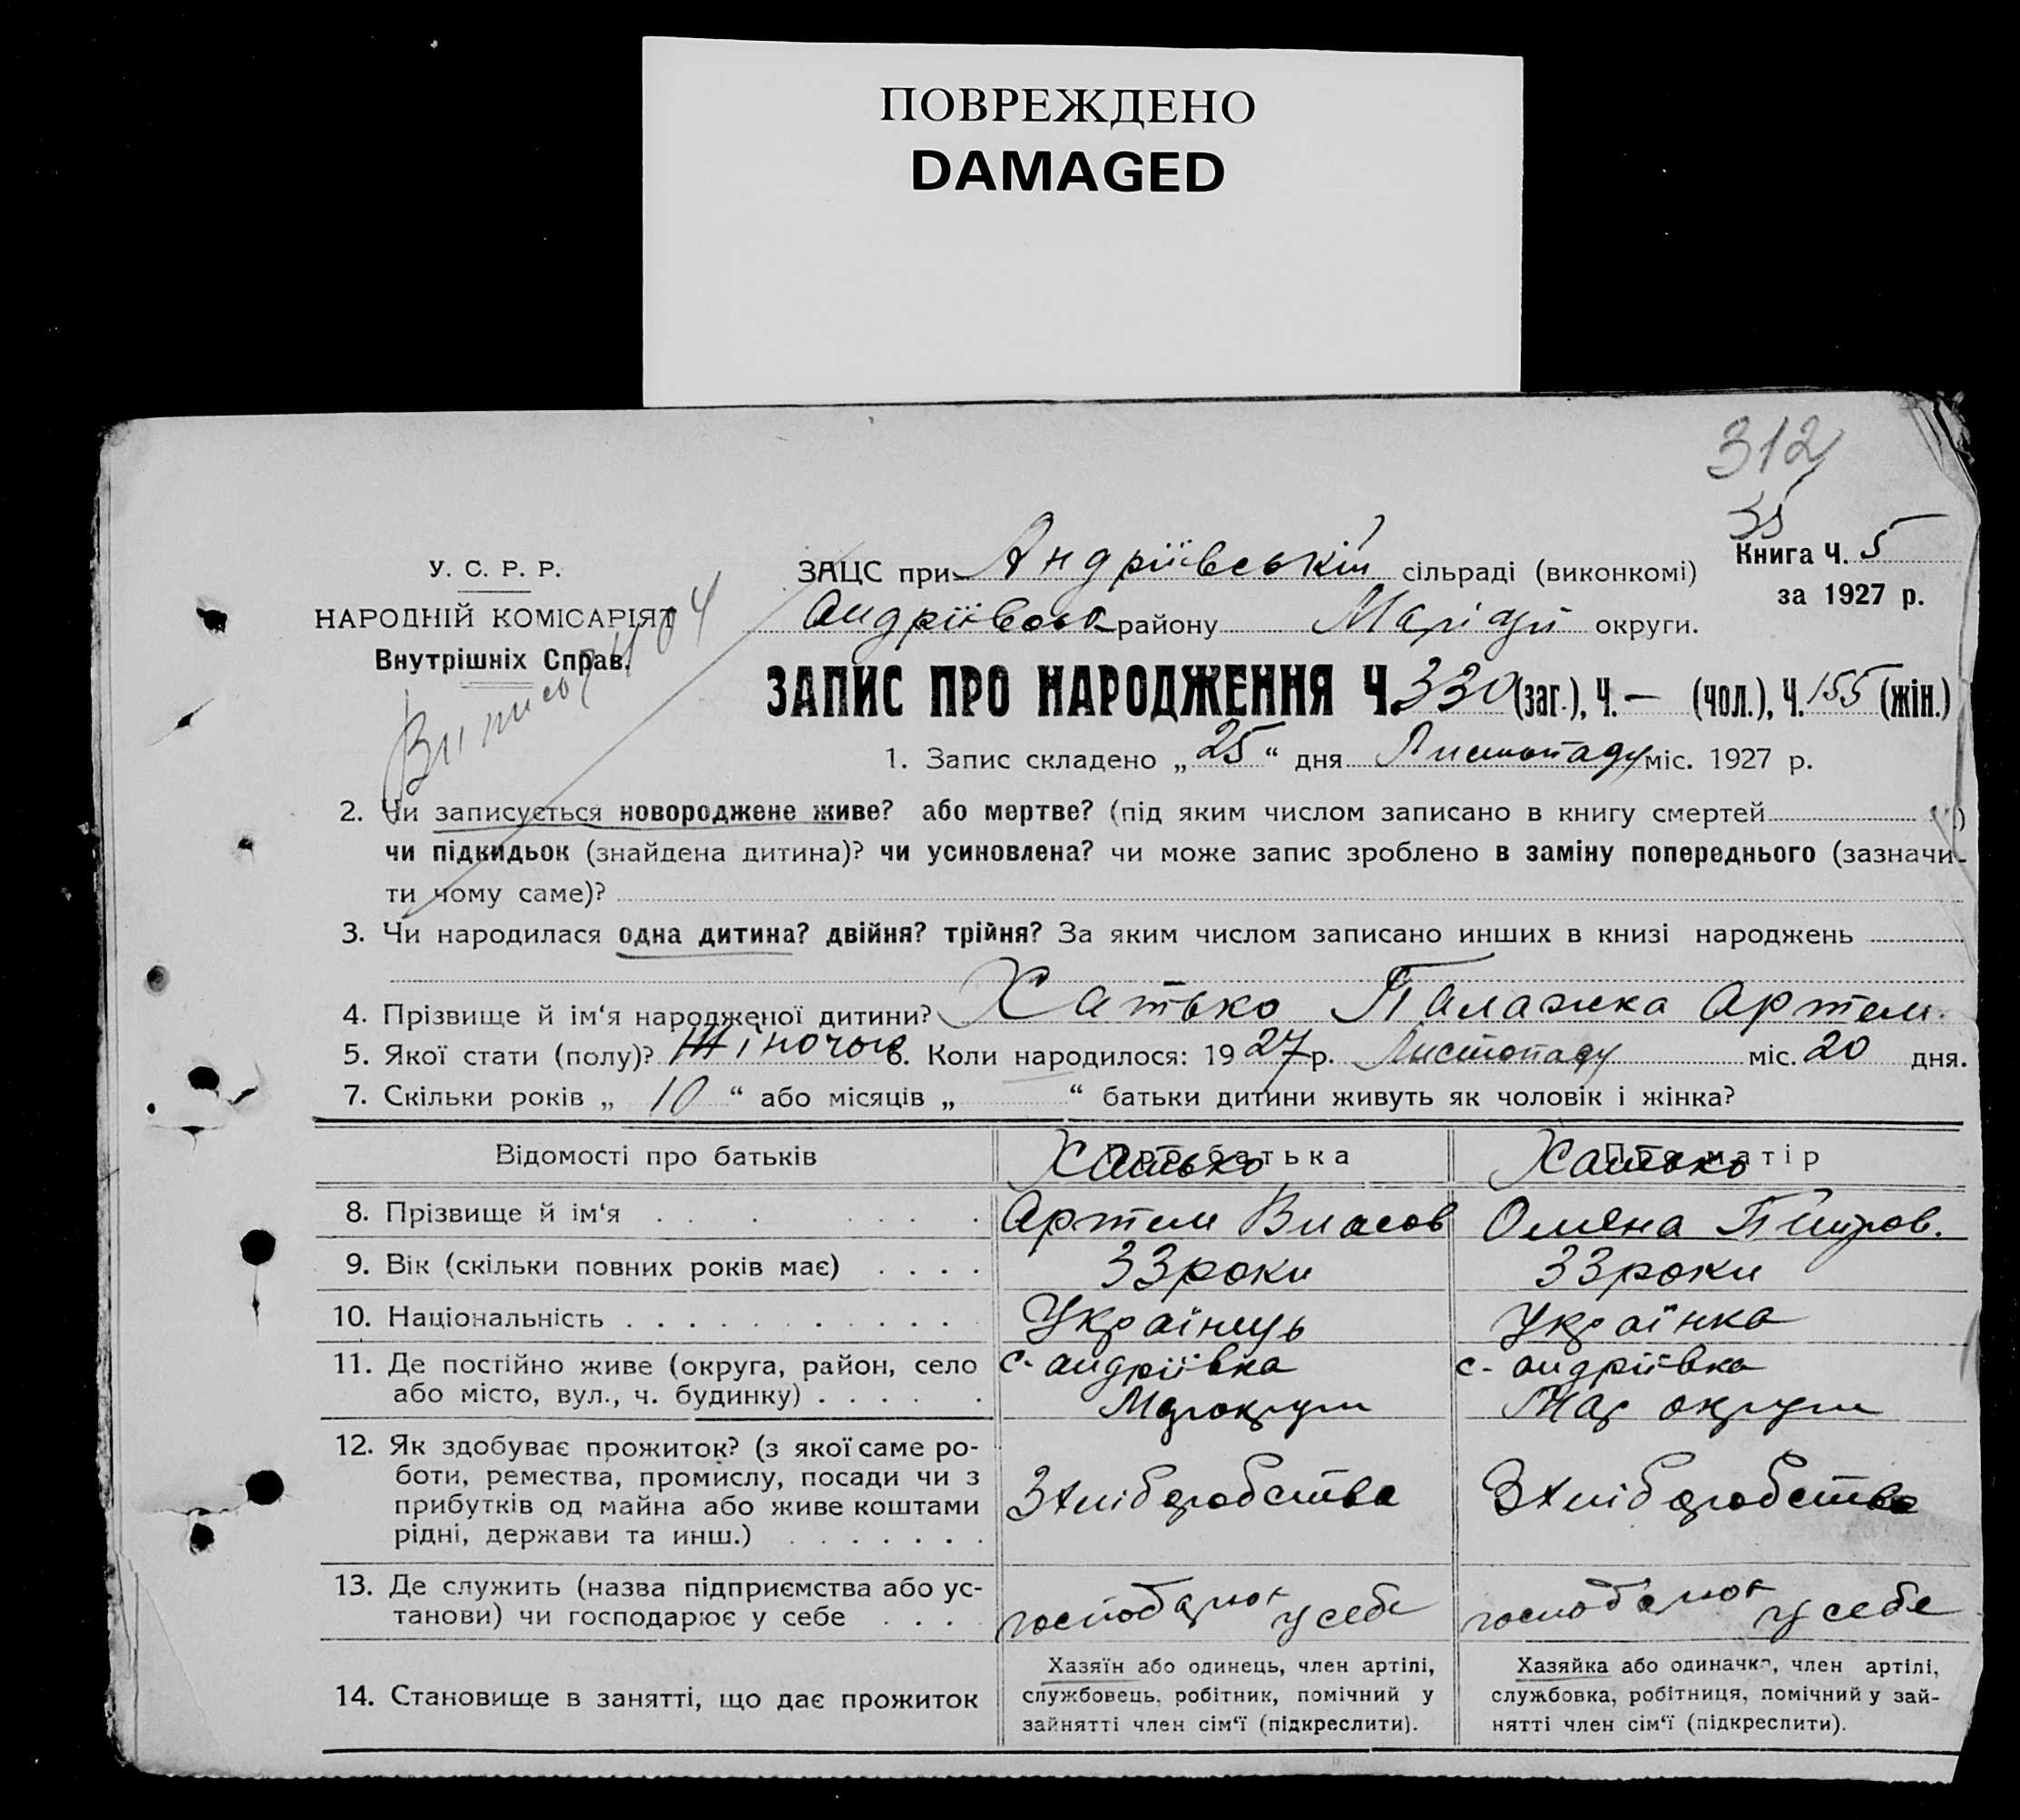 ПОВРЕЖДЕНО
DAMAGED
312
35
У. С. Р. Р.
НАРОДНІЙ КОМІСАРІЯТ
Внутрішніх Справ.
ЗАЦС при Андріївській сільраді (виконкомі)
Книга Ч. 5
за 1927 р.
Андріївськ району Маріюп округи.
ЗАПИС ПРО НАРОДЖЕННЯ Ч. 330 (заг.), Ч. — (чол.), Ч. 155 (жін.)
1. Запис складено „ 25 “ дня Листопаду міс. 1927 р.
2. Чи записується новороджене живе? або мертве? (під яким числом записано в книгу смертей
чи підкидьок (знайдена дитина)? чи усиновлена? чи може запис зроблено в заміну попереднього (зазначи-
ти чому саме)?
3. Чи народилася одна дитина? двійня? трійня? За яким числом записано инших в книзі народжень
4. Прізвище й ім‘я народженої дитини? Хатько Палажка Артем.
5. Якої стати (полу)? Жіночої 6. Коли народилося: 1927 р. Листопаду міс. 20 дня.
7. Скільки років „ 10 “ або місяців „ “ батьки дитини живуть як чоловік і жінка?
Відомості про батьків
Про батька
Про матір
Хатько
Хатько
8. Прізвище й ім‘я . . . . . . . .
Артем Власов
Олмяна Петров.
9. Вік (скільки повних років має) . . . .
33 роки
33 роки
10. Національність . . . . . . . . . . . .
Українець
Українка
11. Де постійно живе (округа, район, село
або місто, вул., ч. будинку) . . . . .
с. андріївка
Мар округи
с. андріївка
Мар округи
12. Як здобуває прожиток? (з якої саме ро-
боти, ремества, промислу, посади чи з
прибутків од майна або живе коштами
рідні, держави та инш.) . . . . . . .
З хліборобства
З хліборобства
13. Де служить (назва підприємства або ус-
танови) чи господарює у себе . . . .
господарює у себе
господарює у себе
14. Становище в занятті, що дає прожиток
Хазяїн або одинець, член артілі,
службовець, робітник, помічний у
зайнятті член сім‘ї (підкреслити).
Хазяйка або одиначка, член артілі,
службовка, робітниця, помічний у зай-
нятті член сім‘ї (підкреслити).